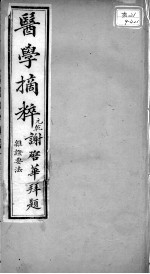 醫學摘粹
謝啓華拜題
雜證要法